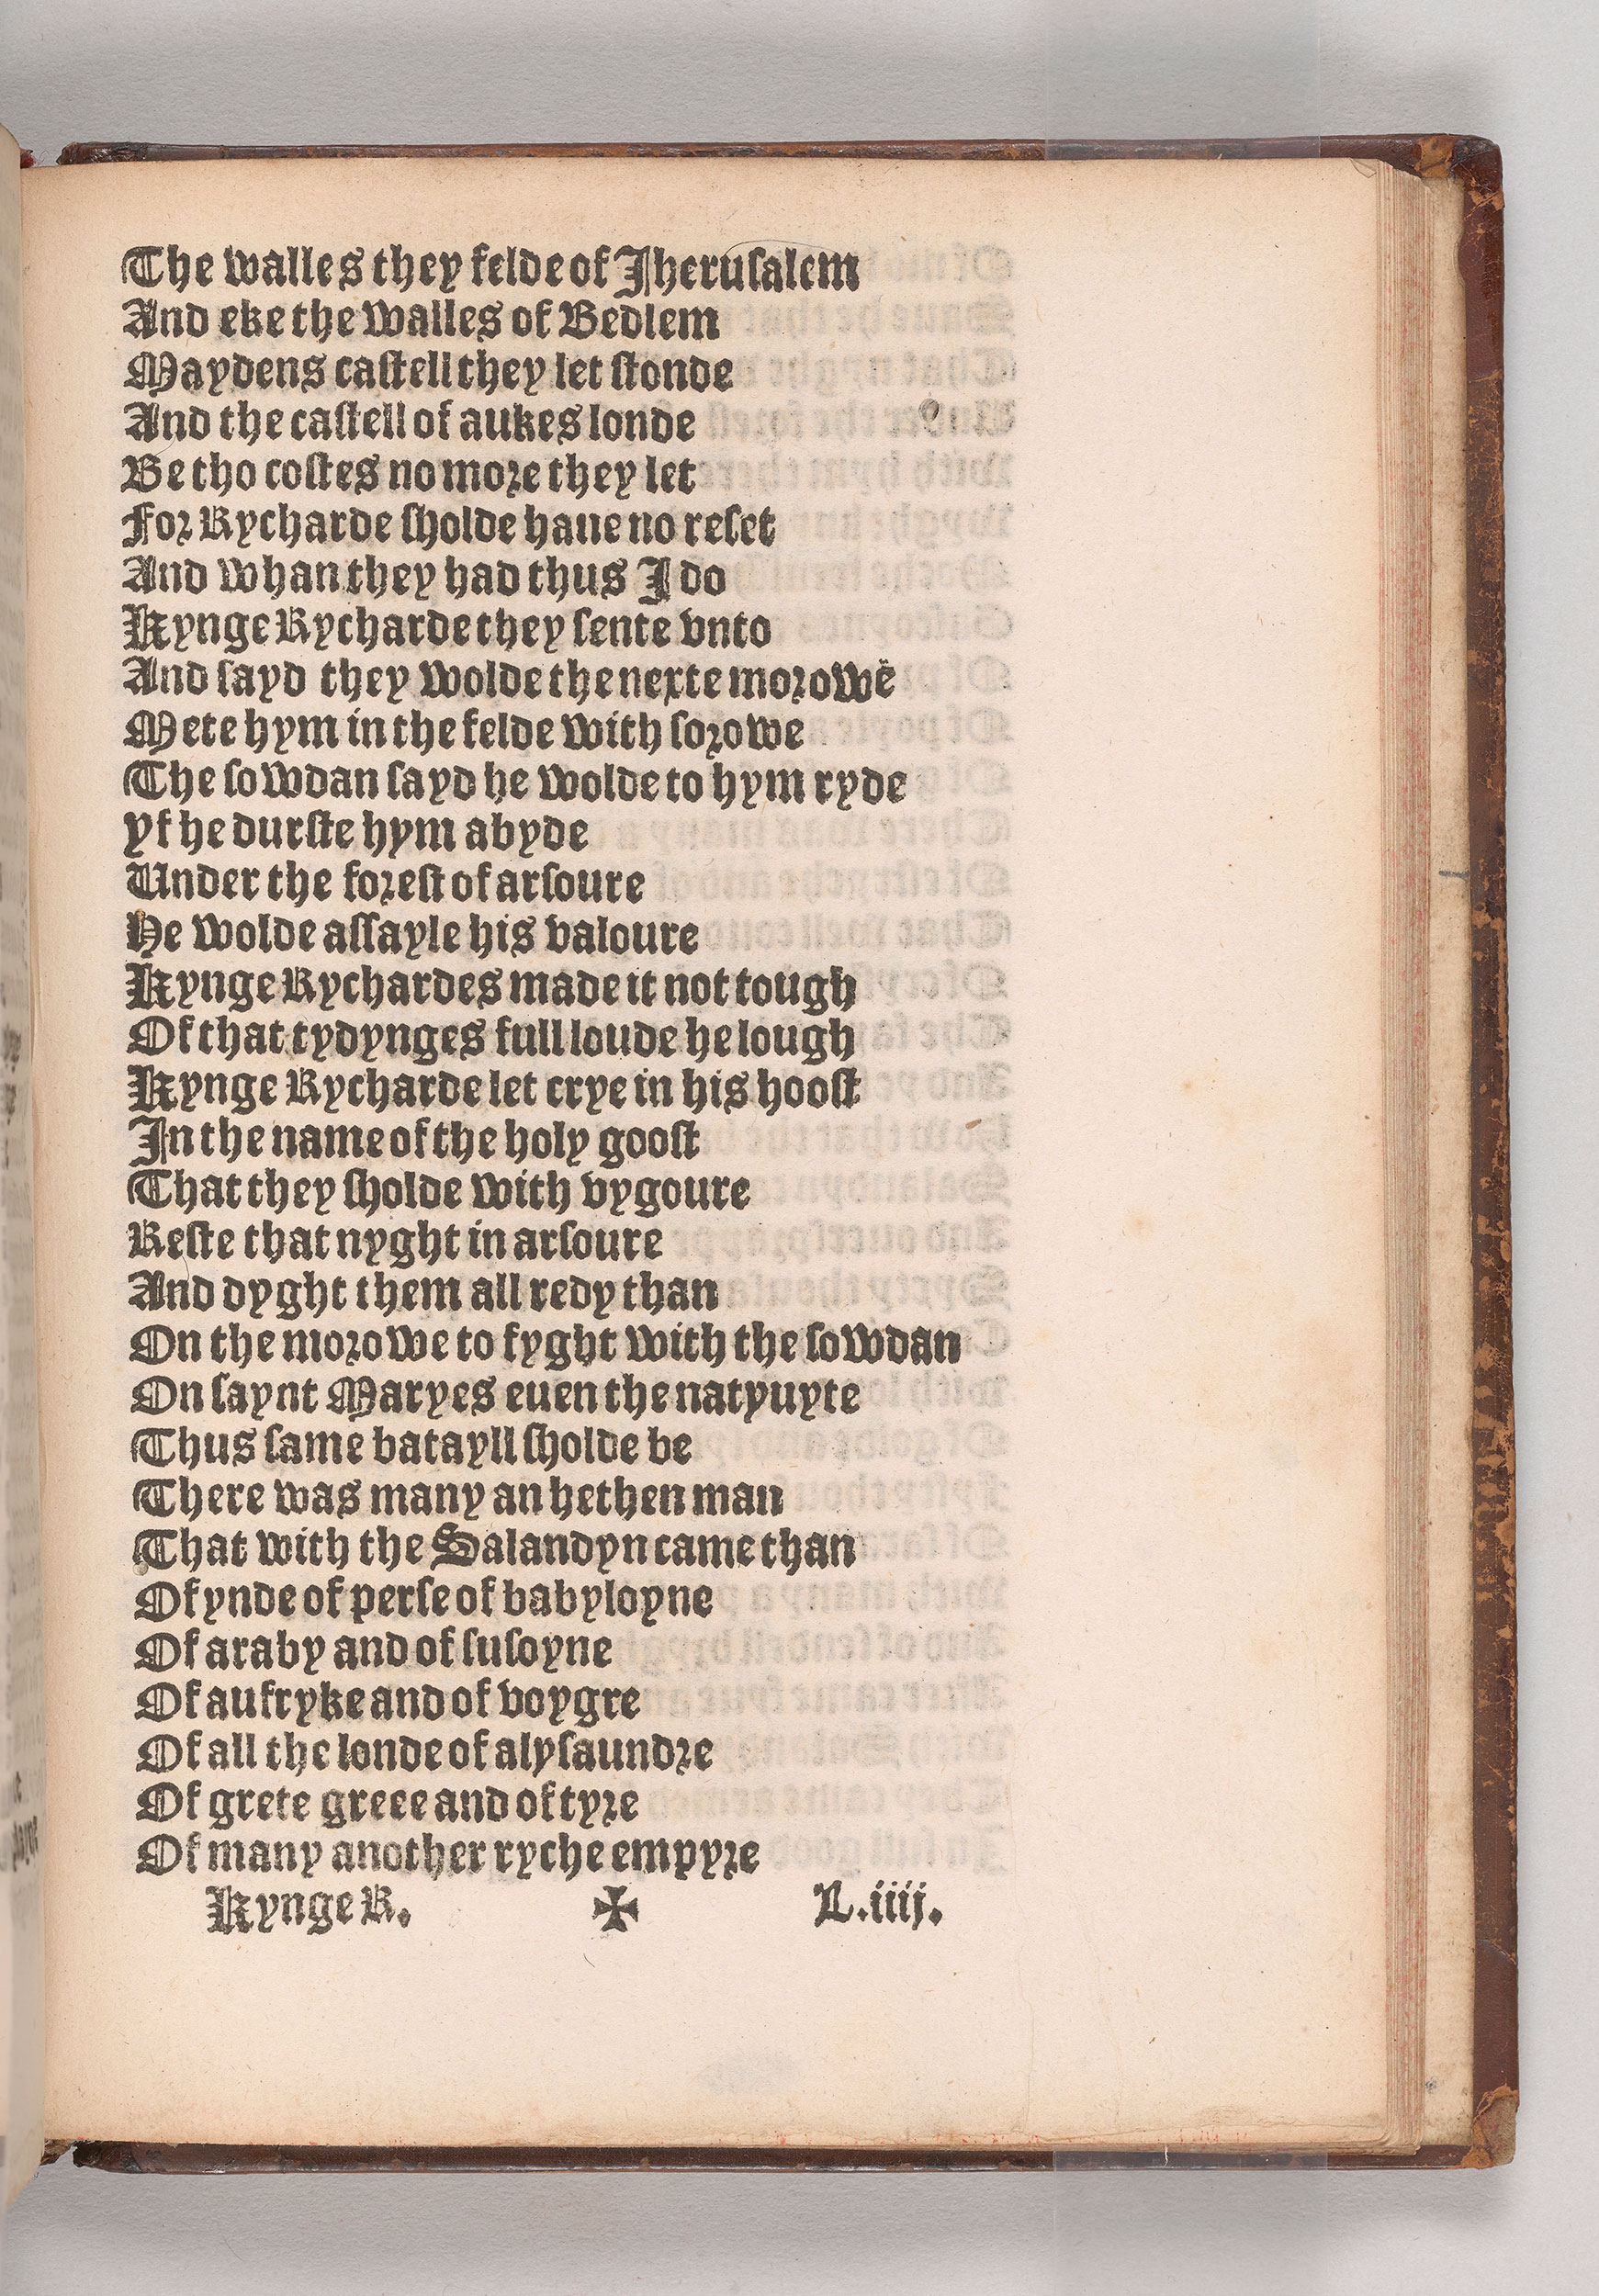 The walles they felde of Jherusalem
And eke the walles of Bedlem
Maydens castell they let stonde
And the castell of aukes londe
Be tho costes no more they let
For Rycharde sholde haue no reset
And whan they had thus I do
Kynge Rycharde they sente vnto
And sayd they wolde the nexte morowe
Mete hym in the felde with sorowe
The sowdan sayd he wolde to hym ryde
yf he durste hym abyde
Under the forest of arsoure
He wolde assayle his valoure
Kynge Rychardes made it not tough
Of that tydynges full loude he lough
Kynge Rycharde let crye in his hoost
In the name of the holy goost
That they sholde with vygoure
Reste that nyght in arsoure
And dyght them all redy than
On the morowe to fyght with the sowdan
On saynt Maryes euen the natyuyte
Thus same batayll sholde be
There was many an hethen man
That with the Salandyn came than
Of ynde of perse of babyloyne
Of araby and of susoyne
Of aufryke and of voygre
Of all the londe of alysaundre
Of grete greee and of tyre
Of many another ryche empyre
Kynge R. ✠ L.iiij.